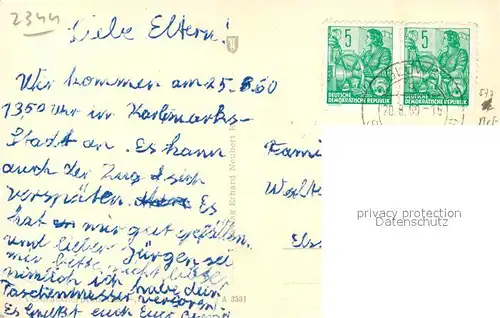 2344
Liebe Eltern!
Wir kommen am 25.8.60
13,50 Uhr in Karlmarks-
Stadt an. Es kann
auch der Zug sich
verspäten. Es
hat mir gut gefallen,
und lieber Jürgen sei
mir bitte nicht böse
nämlich ich habe dein
Taschenmesser verloren.
Es grüßt euch Euer
5
5
DEUTSCHE
DEMOKRATISCHE REPUBLIK
DEUTSCHE
DEMOKRATISCHE REPUBLIK
Fami
Walte
Els
Erhard Neubert
A 3531
privacy protection
datenschutz